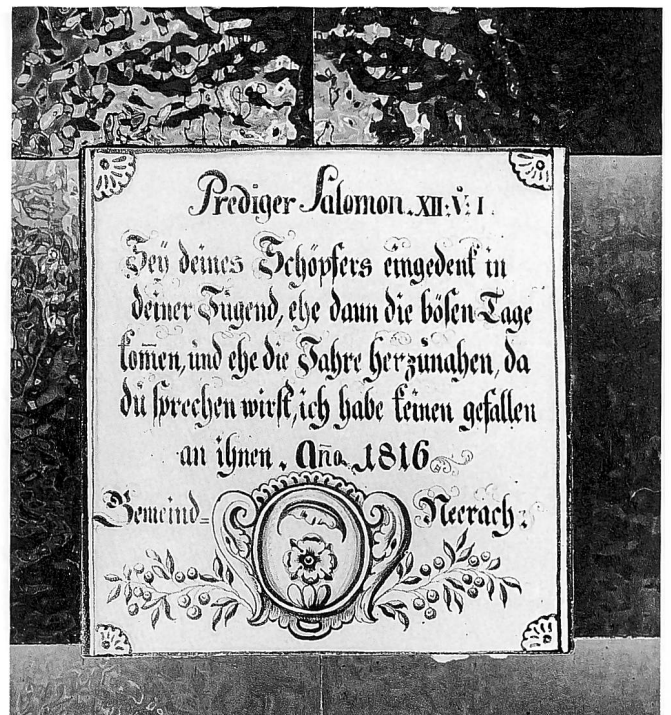 Prediger Salomon. XII. V: 1.
Seÿ deines Schöpfers eingedenk in
deiner Jŭgend, ehe dann die bösen Tage
kom̅en, ŭnd ehe die Jahre herzŭnahen, da
dŭ sprechen wirst, ich habe keinen gefallen
an ihnen. An̅o. 1816
Gemeind= Neerach.